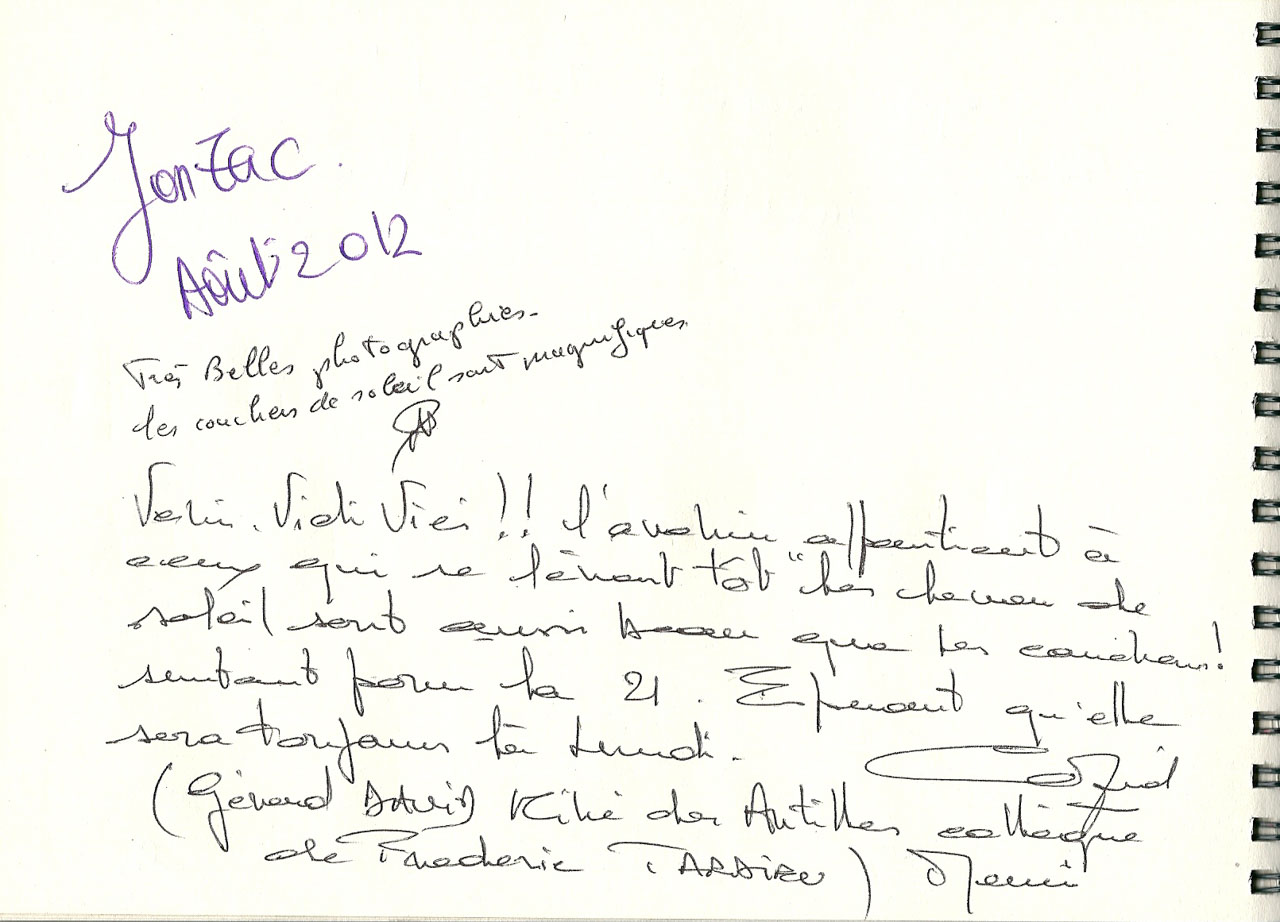 Jonzac.
Août 2012
Très Belles photographies.
les couchers de soleil sont magnifiques
Veni. Vidi Vici !! l'avenir appartient à
ceux qui se lèvent tôt "les levers de
soleil sont aussi beau que les couchers!
surtout pour la 21. Espérant qu'elle
sera toujours là Lundi.
(Gérard DAVID Kiné des Antilles collègue
de Frederic TARDIEU) Merci